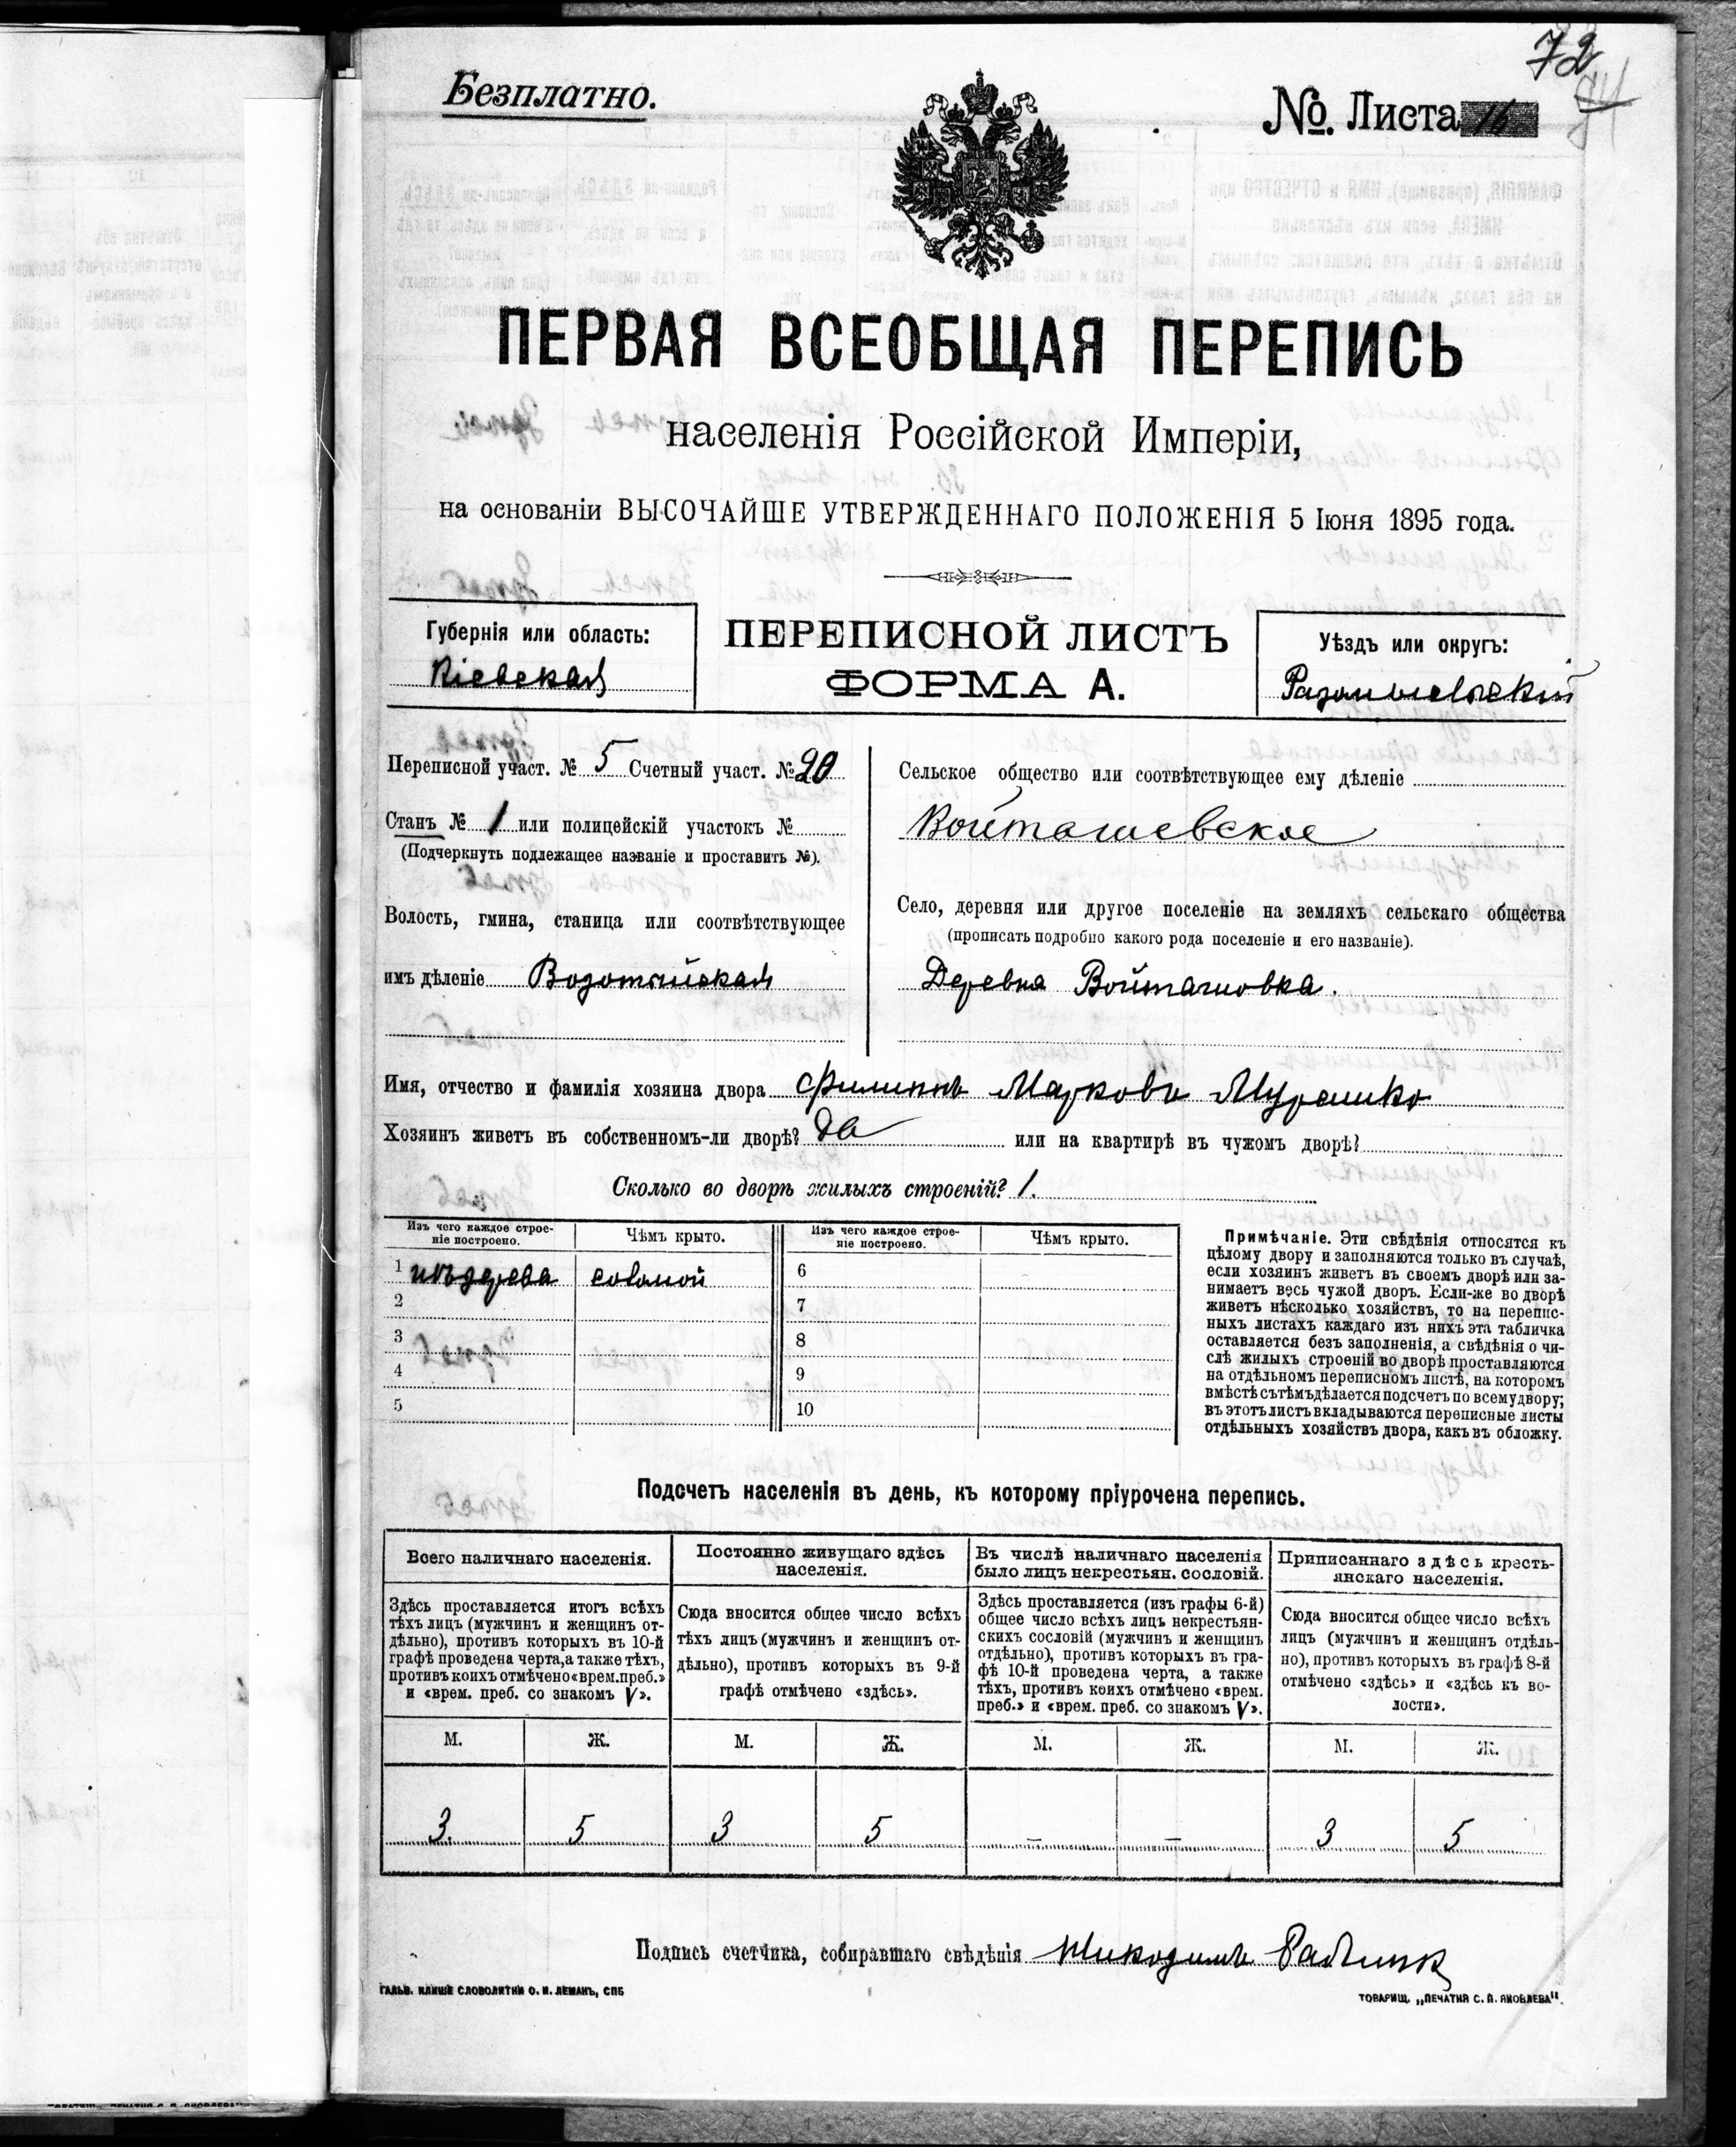 72
Безплатно.
№. Листа 16
ПЕРВАЯ ВСЕОБЩАЯ ПЕРЕПИСЬ
населенія Россійской Имперіи,
на основаніи ВЫСОЧАЙШЕ УТВЕРЖДЕННАГО ПОЛОЖЕНІЯ 5 Іюня 1895 года.
Губернія или область:
Кіевская
ПЕРЕПИСНОЙ ЛИСТЪ
ФОРМА А.
Уѣздъ или округъ:
Радомысльскій
Переписной участ. № 5 Счетный участ. № 20
Станъ № 1 или полицейскій участокъ №
(Подчеркнуть подлежащее названіе и проставить №).
Волость, гмина, станица или соотвѣтствующее
имъ дѣленіе
Сельское общество или соотвѣтствующее ему дѣленіе
Войташевское
Село, деревня или другое поселеніе на земляхъ сельскаго общества
(прописать подробно какого рода поселеніе и его названіе).
Деревня Войташовка.
Имя, отчество и фамилія хозяина двора Филиппъ Марковъ Мурашко
Хозяинъ живетъ въ собственномъ-ли дворѣ? да или на квартирѣ въ чужомъ дворѣ?
Сколько во дворѣ жилыхъ строеній? 1.
Изъ чего каждое строе-
ніе построено.
Чѣмъ крыто.
Изъ чего каждое строе-
ніе построено.
Чѣмъ крыто.
1 изъ дерева соломой 6
2 7
3 8
4 9
5 10
Примѣчаніе. Эти свѣдѣнія относятся къ
цѣлому двору и заполняются только въ случаѣ,
если хозяинъ живетъ въ своемъ дворѣ или за-
нимаетъ весь чужой дворъ. Если-же во дворѣ
живетъ нѣсколько хозяйствъ, то на перепис-
ныхъ листахъ каждаго изъ нихъ эта табличка
оставляется безъ заполненія, а свѣдѣнія о чи-
слѣ жилыхъ строеній во дворѣ проставляются
на отдѣльномъ переписномъ листѣ, на которомъ
вмѣстѣ съ тѣмъ дѣлается подсчетъ по всему двору;
въ этотъ листъ вкладываются переписные листы
отдѣльныхъ хозяйствъ двора, какъ въ обложку.
Подсчетъ населенія въ день, къ которому пріурочена перепись.
Всего наличнаго населенія.
Постоянно живущаго здѣсь
населенія.
Въ числѣ наличнаго населенія
было лицъ некрестьян. сословій.
Приписаннаго здѣсь кресть-
янскаго населенія.
Здѣсь проставляется итогъ всѣхъ
тѣхъ лицъ (мужчинъ и женщинъ от-
дѣльно), противъ которыхъ въ 10-й
графѣ проведена черта, а также тѣхъ,
противъ коихъ отмѣчено «врем. преб.»
и «врем. преб. со знакомъ V».
Сюда вносится общее число всѣхъ
тѣхъ лицъ (мужчинъ и женщинъ от-
дѣльно), противъ которыхъ въ 9-й
графѣ отмѣчено «здѣсь».
Здѣсь проставляется (изъ графы 6-й)
общее число всѣхъ лицъ некрестьян-
скихъ сословій (мужчинъ и женщинъ
отдѣльно), противъ которыхъ въ гра-
фѣ 10-й проведена черта, а также
тѣхъ, противъ коихъ отмѣчено «врем.
преб.» и «врем. преб. со знакомъ V».
Сюда вносится общее число всѣхъ
лицъ (мужчинъ и женщинъ отдѣль-
но), противъ которыхъ въ графѣ 8-й
отмѣчено «здѣсь» и «здѣсь къ во-
лости».
М. Ж. М. Ж. М. Ж. М. Ж.
3. 5 3 5 – – 3 5
Подпись счетчика, собиравшаго свѣдѣнія Никодимъ
ГАЛЬВ. КЛИШЕ СЛОВОЛИТНИ О. И. ЛЕМАНЪ, СПБ
ТОВАРИЩ. „ПЕЧАТНЯ С. П. ЯКОВЛЕВА".